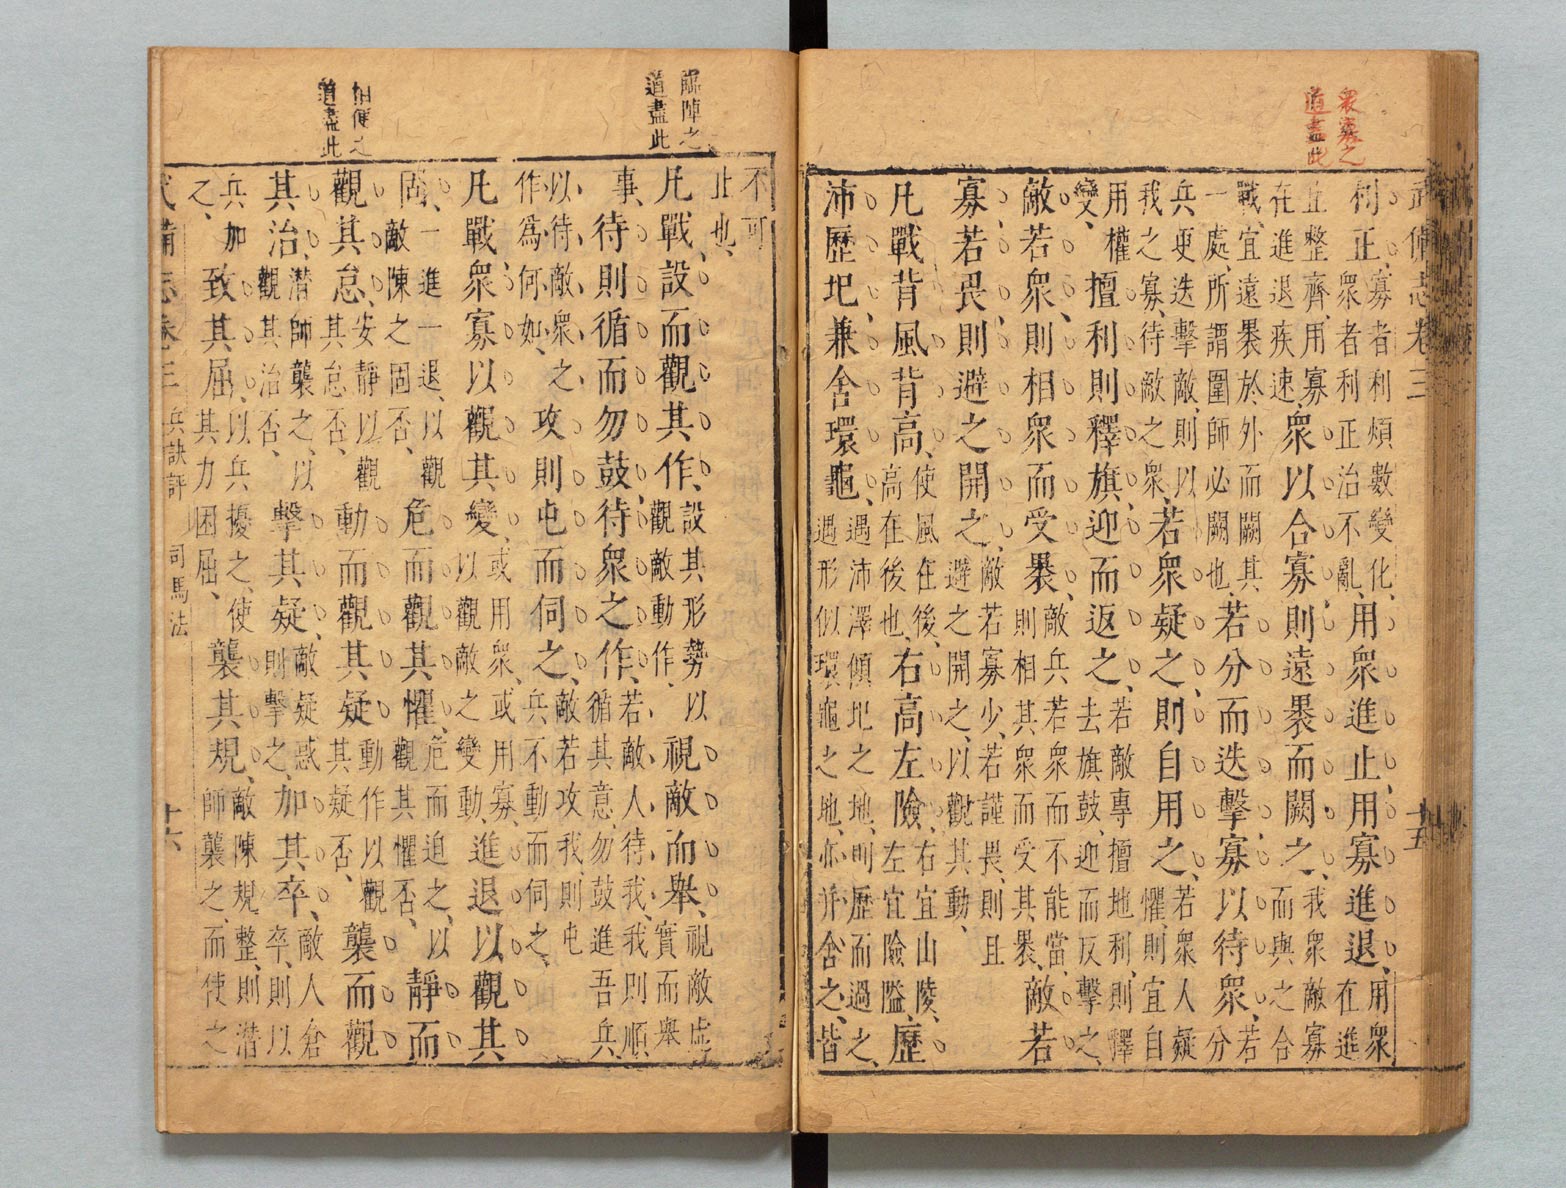 武備志卷三 十五
眾寡之
道盡此
利正、寡者利煩數變化、眾者利正治不亂、用眾進止、用寡進退、用眾在進
止整齊、用寡在進退疾速、眾以合寡、則遠褁而闕之、我眾敵寡而與之合
戰、宜遠褁於外而闕其一處、所謂圍師必闕也、若分而迭擊、寡以待眾、若分
兵更迭擊敵、則以我之寡、待敵之眾、若眾疑之、則自用之、若眾人疑懼、則宜自
用權變、擅利則釋旗、迎而返之、若敵專擅地利、則釋去旗鼓、迎而反擊之、
敵若眾、則相眾而受褁、敵兵若眾而不能當、則相其眾而受其褁、敵若
寡、若畏、則避之開之、敵若寡少、若謹畏、則且避之開之、以觀其動、
凡戰背風背高、使風在後、高在後也、右高左險、右宜山陵、左宜險隘、歷
沛歷圮、兼舍環龜、遇沛澤傾圮之地、則歷而過之、遇形似環龜之地、亦并舍之、皆
臨陣之
道盡此
便之
道盡此
不可止也、
凡戰、設而觀其作、設其形勢以觀敵動作、視敵而舉、視敵虛實而舉
事、待則循而勿鼓、待眾之作、若敵人待我、我則順循其意、勿鼓進吾兵、
以待敵眾之作為何如、攻則屯而伺之、敵若攻我、則屯兵不動而伺之、
凡戰、眾寡以觀其變、或用眾、或用寡、以觀敵之變動、進退以觀其
固、一進一退、以觀敵陳之固否、危而觀其懼、危而迫之、以觀其懼否、靜而
觀其怠、安靜以觀其怠否、動而觀其疑、動作以觀其疑否、襲而觀
其治、潛師襲之、以觀其治否、擊其疑、敵疑惑則擊之、加其卒、敵人倉卒、則以
兵加之、致其屈、以兵擾之、使其力困屈、襲其規、敵陳規整、則潛師襲之、而使之
武備志卷三 兵訣評 司馬法 十六